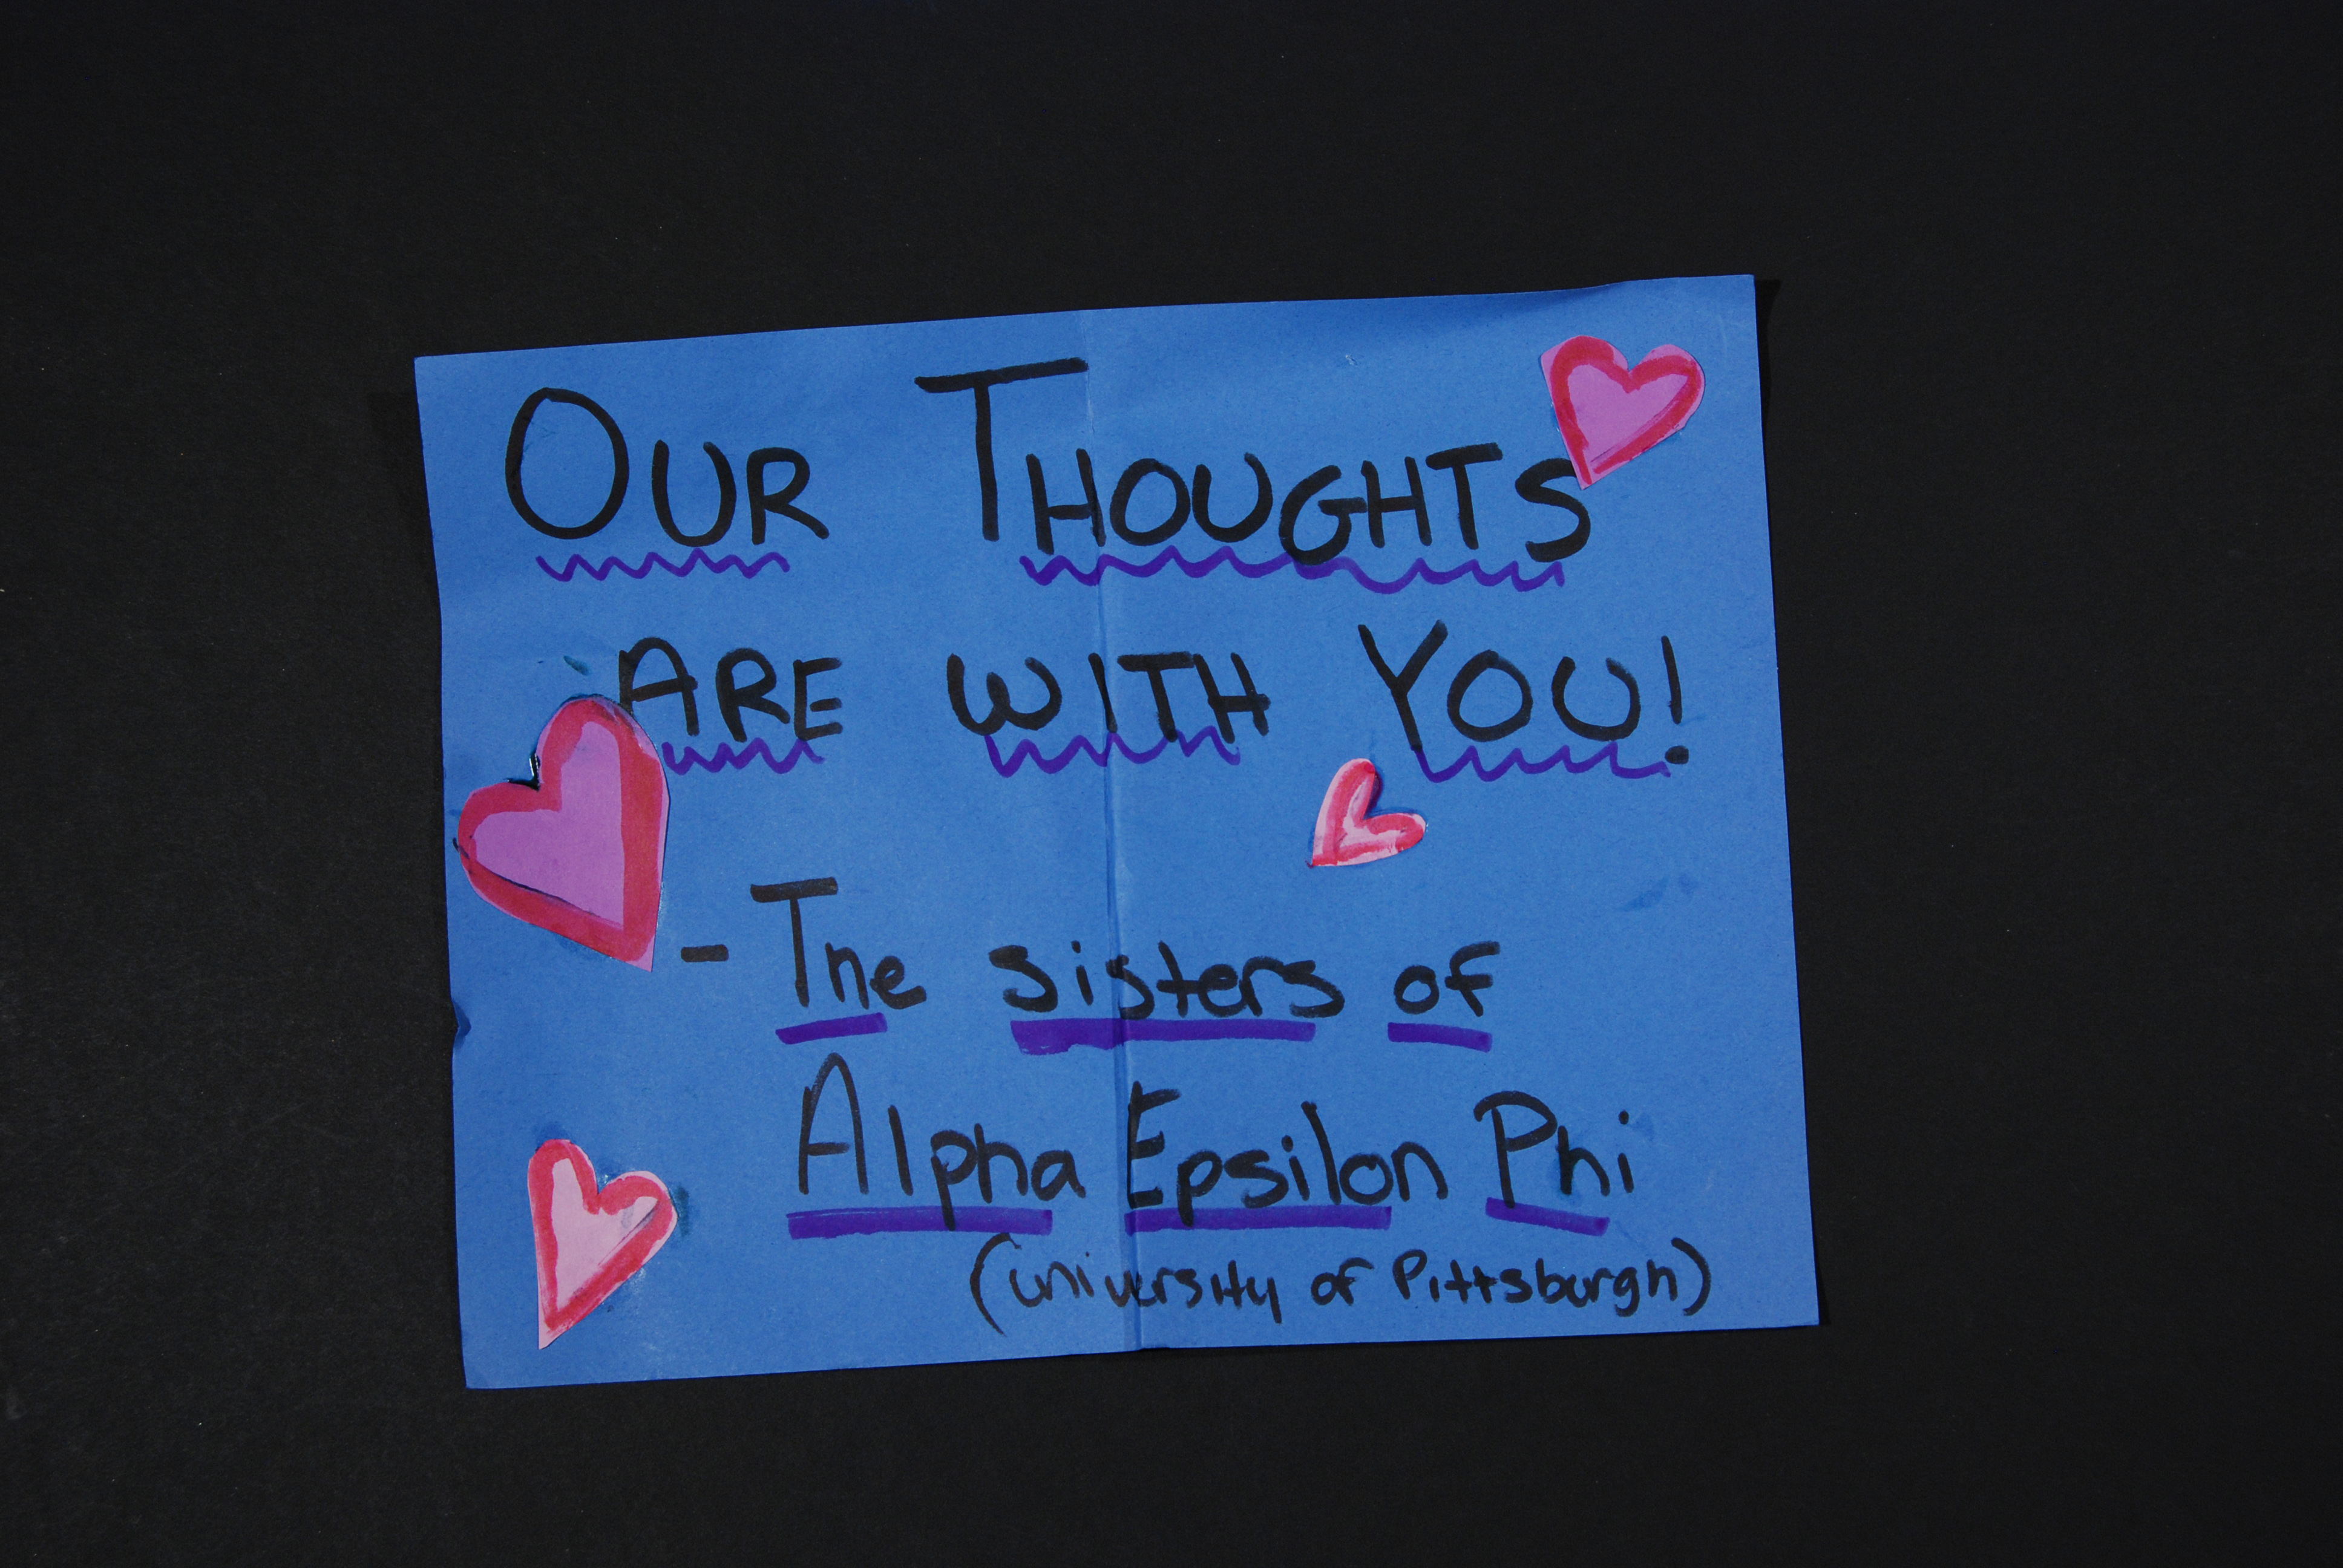 OUR THOUGHTS
ARE WITH YOU!
- The sisters of
Alpha Epsilon Phi
(university of Pittsburgh)